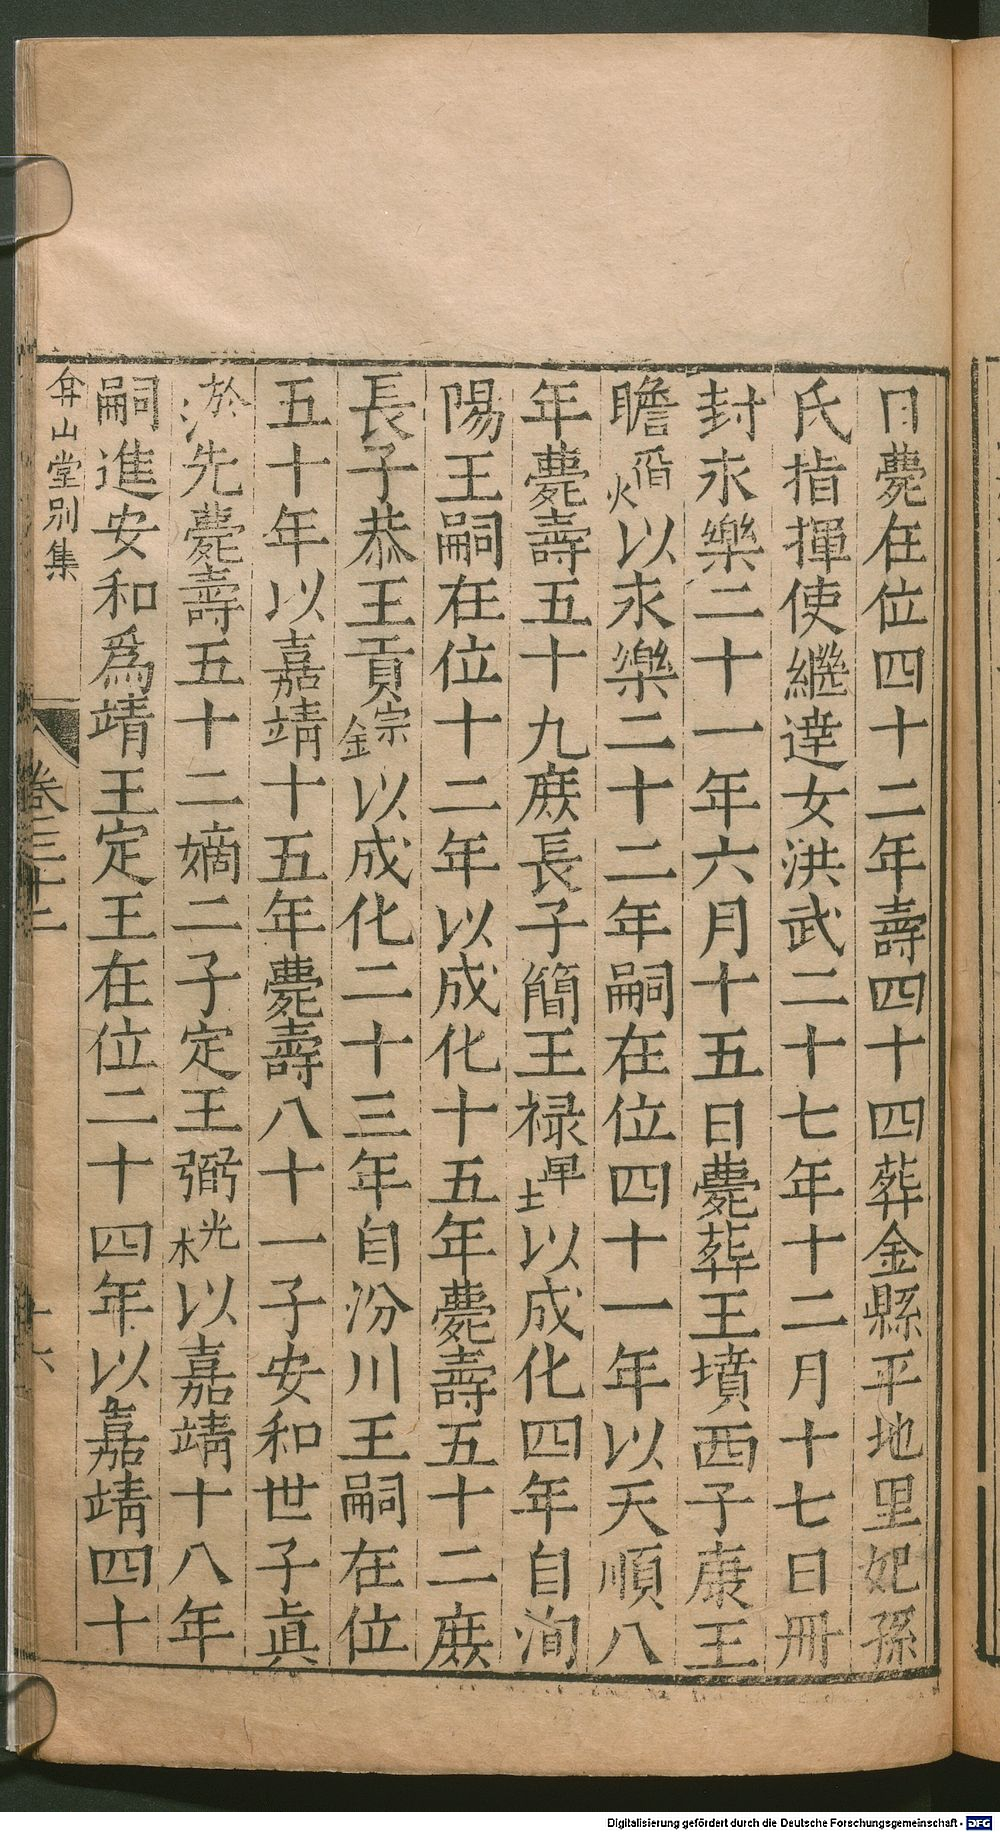 日薨在位四十二年壽四十四葬金縣平地里妃孫
氏指揮使繼達女洪武二十七年十二月十七日冊
封永樂二十一年六月十五日薨葬王墳西子康王
瞻焰以永樂二十二年嗣在位四十一年以天順八
年薨壽五十九庶長子簡王祿埠以成化四年自洵
陽王嗣在位十二年以成化十五年薨壽五十二庶
長子恭王貢錝以成化二十三年自汾川王嗣在位
五十年以嘉靖十五年薨壽八十一子安和世子眞
淤先薨壽五十二嫡二子定王弼桄以嘉靖十八年
嗣進安和爲靖王定王在位二十四年以嘉靖四十
弇山堂別集
卷三十二
十六
Digitalisierung gefördert durch die Deutsche Forschungsgemeinschaft - DFG